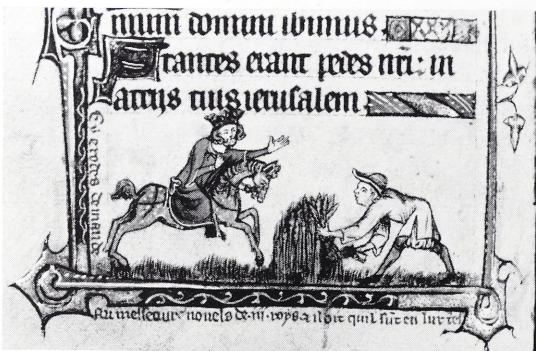 mum domini ibimus
Stantes erant pedes nri: in
atrijs tuis ierusalem
Ci erodes demaunde
Au messeour nouels de .iii. roys & il dit quil sūt en lur